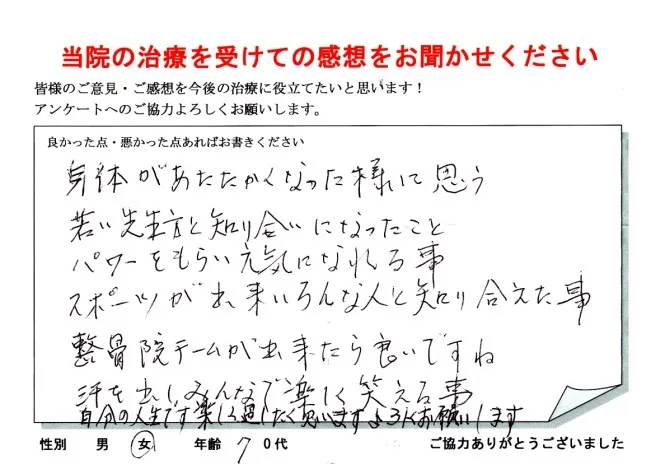 当院の治療を受けての感想をお聞かせください
皆様のご意見・ご感想を今後の治療に役立てたいと思います!
アンケートへのご協力よろしくお願いします。
良かった点・悪かった点あればお書きください
身体があたたかくなった様に思う
若い先生方と知り合いになったこと
パワーをもらい元気になれる事
スポーツが出来いろんな人と知り合えた事
整骨院チームが出来たら良いですね
汗を出しみんなで楽しく笑える事
自分の人生です楽しく過したく思いますよろしくお願いします
性別 男 女 年齢 70代 ご協力ありがとうございました